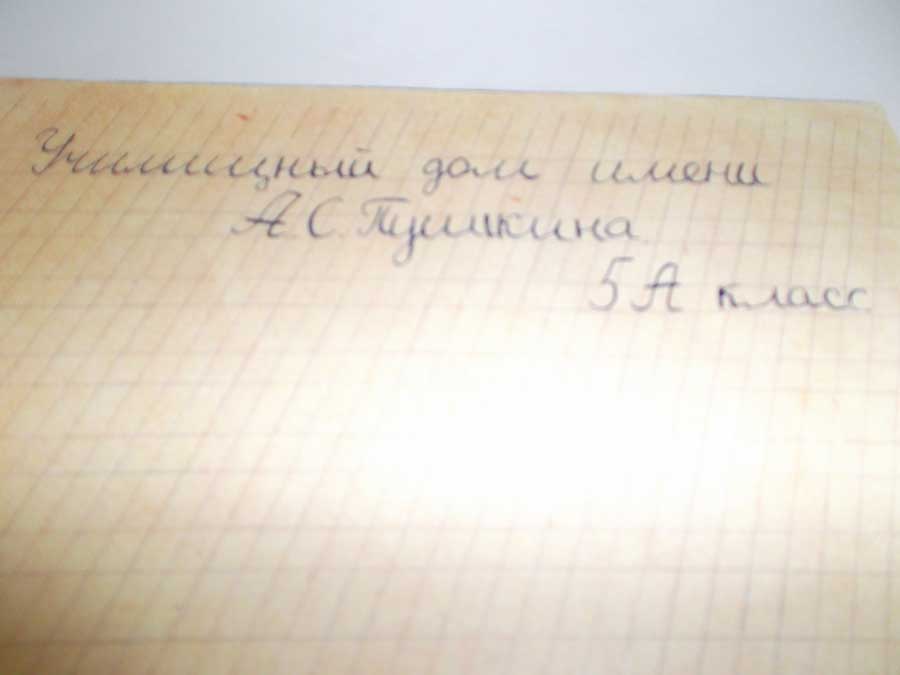 Училищный дом имени
А.С. Пушкина
5 А класс